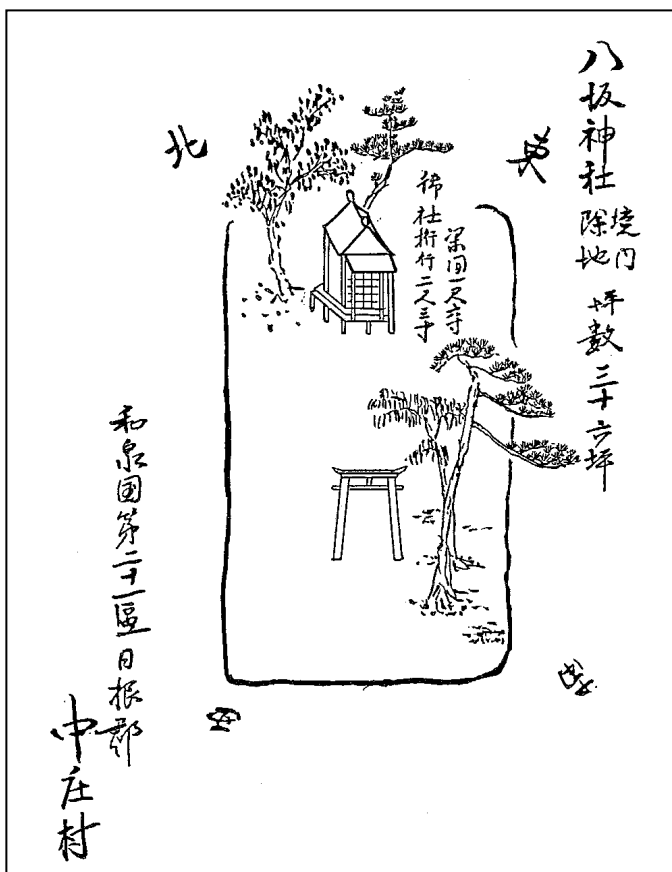 八坂神社 境内除地 坪数三十六坪
東
梁間一尺六寸
御社桁行二尺三寸
北
南
西
和泉国第二十一區日根郡
中庄村